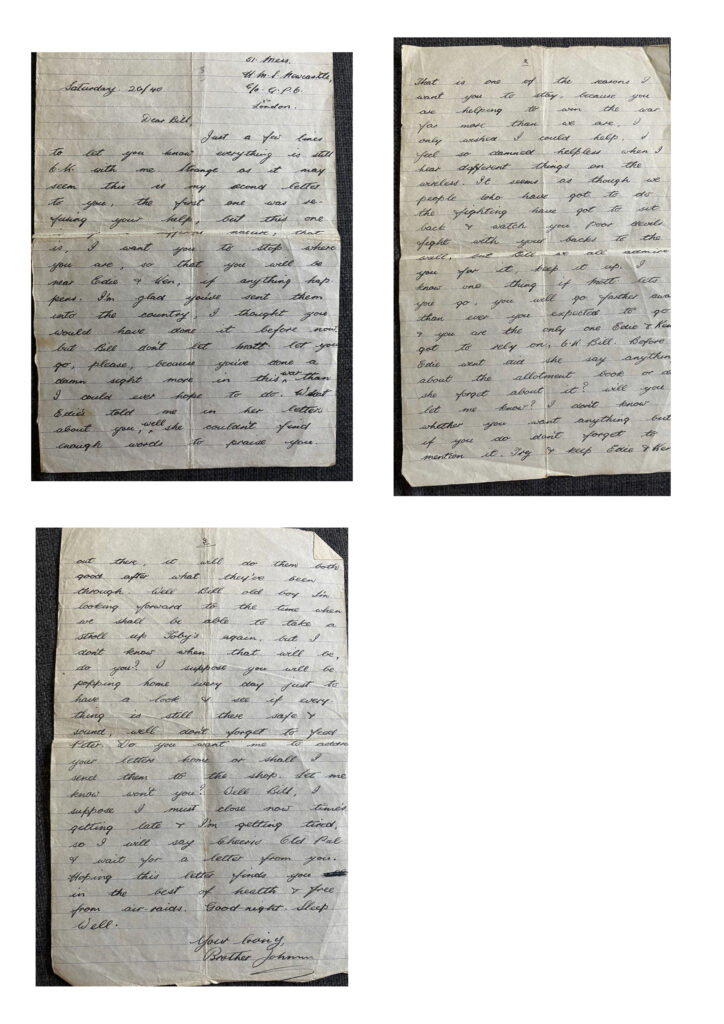 51 Mess.
H.M.S. Newcastle,
c/o G.P.O.
London.
Saturday 20/40
Dear Bill,
Just a few lines
to let you know everything is still
O.K. with me Strange as it may
seem this is my second letter
to you, the first one was re-
fusing your help, but this one
nature, that
is, I want you to stop where
you are, so that you will be
near Edie & Ken, if anything hap
pens. I'm glad you've sent them
into the country, I thought you
would have done it before now
but Bill don't let Matt let you
go, please, because you've done a
damn sight more in this war than
I could ever hope to do. What
Edie's told me in her letters
about you, well she couldn't find
enough words to praise you.
2
That is one of the reasons I
want you to stay, because you
are helping to win the war
far more than we are. I
only wished I could help, I
feel so damned helpless when I
hear different things on the
wireless. It seems as though we
people who have got to do
the fighting have got to sit
back & watch you poor devils
fight with your backs to the
wall, but Bill we all admire
you for it, keep it up. I
know one thing if Matt lets
you go, you will go farther awa
than ever you expected to go
& you are the only one Edie & Ken
got to rely on, O.K Bill. Before
Edie went did she say anythin
about the allotment book or di
she forget about it? will you
let me know? I don't know
whether you want anything but
if you do don't forget to
mention it. Try & keep Edie & Ken
3
out there, it will do them both
good after what they've been
through. Well Bill old boy I'm
looking forward to the time when
we shall be able to take a
stroll up Toby's again, but I
don't know when that will be,
do you? I suppose you will be
popping home every day just to
have a look & see if every
thing is still there safe &
sound, well don't forget to feed
Peter. Do you want me to addre
your letters home or shall I
send them to the shop. Let me
know won't you? Well Bill, I
suppose I must close now times
getting late & I'm getting tired,
so I will say Cheerio Old Pal
& wait for a letter from you.
Hoping this letter finds you
in the best of health & free
from air-raids. Good-night. Sleep
Well.
Your loving,
Brother Johnnie